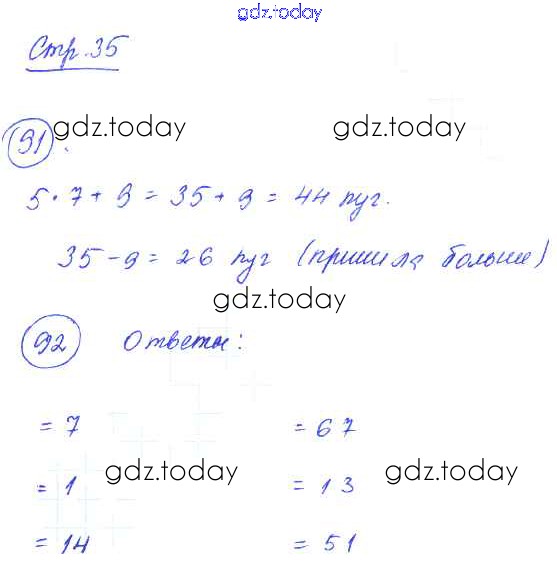 gdz.today
Стр. 35
91. gdz.today gdz.today
5 · 7 + 9 = 35 + 9 = 44 пуг.
35 - 9 = 26 пуг (пришила больше)
gdz.today
92 Ответы:
= 7 = 67
= 1 gdz.today = 13 gdz.today
= 14 = 51